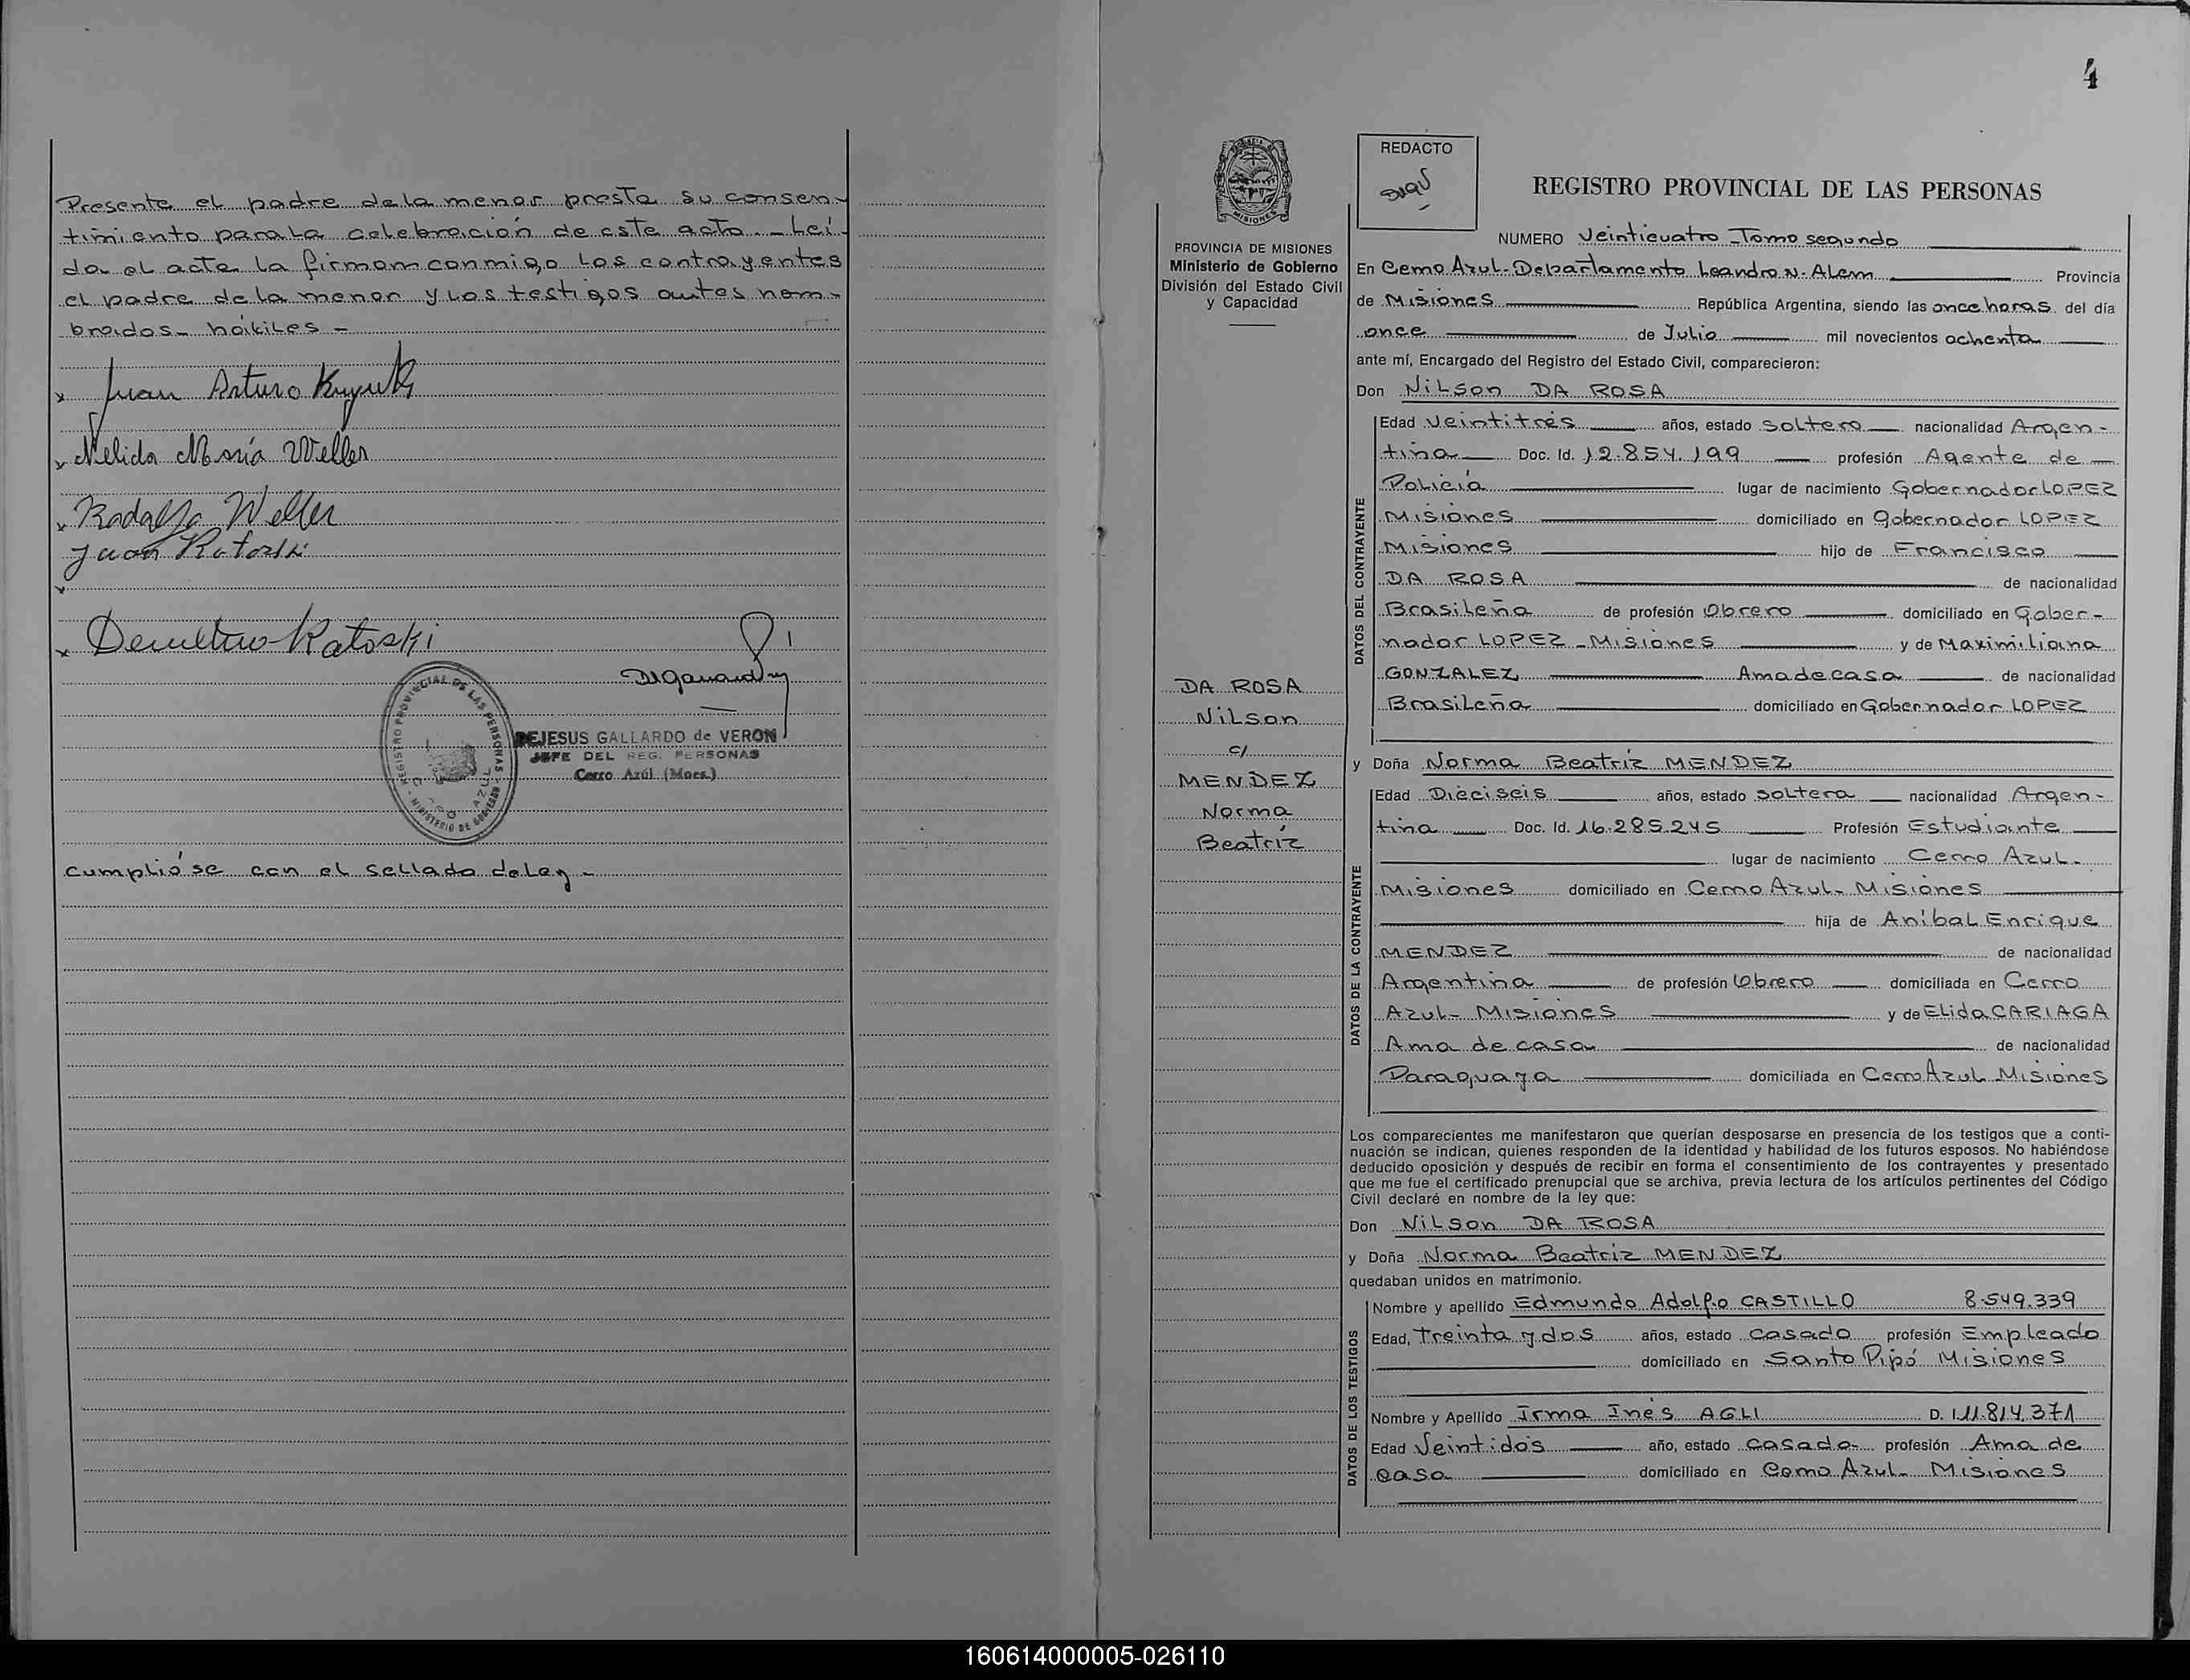 Presente el padre de la menor presta su consen-
timiento para la celebración de este acto. - Leí-
da el acta la firman conmigo los contrayentes
el padre de la menor y los testigos antes nom-
brados - hábiles -
x Juan Arturo
x Nelida María Weller
x Rodolfo Weller
Juan Ratoski
x
x Demetrio Ratoski
REGISTRO PROVINCIAL DE LAS PERSONAS
MINISTERIO DE GOBIERNO
CERRO AZUL
DEJESUS GALLARDO de VERON
JEFE DEL REG. PERSONAS
Cerro Azúl (Mnes.)
Cumplióse con el sellado de Ley -
4
MISIONES
PROVINCIA DE MISIONES
Ministerio de Gobierno
División del Estado Civil
y Capacidad
DA ROSA
Nilson
c/
MENDEZ
Norma
Beatríz
REDACTO
REGISTRO PROVINCIAL DE LAS PERSONAS
NUMERO Veinticuatro - Tomo segundo
En Cerro Azul - Departamento Leandro N. Alem Provincia
de Misiones República Argentina, siendo las once horas del día
once de Julio mil novecientos ochenta
ante mí, Encargado del Registro del Estado Civil, comparecieron:
Don Nilson DA ROSA
DATOS DEL CONTRAYENTE
Edad Veintitrés años, estado soltero nacionalidad Argen-
tina Doc. Id. 12.854.199 profesión Agente de
Policía lugar de nacimiento Gobernador LOPEZ
Misiones domiciliado en Gobernador LOPEZ
Misiones hijo de Francisco
DA ROSA de nacionalidad
Brasileña de profesión Obrero domiciliado en Gober-
nador LOPEZ - Misiones y de Maximiliana
GONZALEZ Ama de casa de nacionalidad
Brasileña domiciliado en Gobernador LOPEZ
y Doña Norma Beatríz MENDEZ
DATOS DE LA CONTRAYENTE
Edad Dieciseis años, estado soltera nacionalidad Argen-
tina Doc. Id. 16.285.245 Profesión Estudiante
lugar de nacimiento Cerro Azul -
Misiones domiciliado en Cerro Azul - Misiones
hija de Aníbal Enrique
MENDEZ de nacionalidad
Argentina de profesión Obrero domiciliada en Cerro
Azul - Misiones y de Elida CARIAGA
Ama de casa de nacionalidad
Paraguaya domiciliada en Cerro Azul Misiones
Los comparecientes me manifestaron que querían desposarse en presencia de los testigos que a conti-
nuación se indican, quienes responden de la identidad y habilidad de los futuros esposos. No habiéndose
deducido oposición y después de recibir en forma el consentimiento de los contrayentes y presentado
que me fue el certificado prenupcial que se archiva, previa lectura de los artículos pertinentes del Código
Civil declaré en nombre de la ley que:
Don Nilson DA ROSA
y Doña Norma Beatriz MENDEZ
quedaban unidos en matrimonio.
DATOS DE LOS TESTIGOS
Nombre y apellido Edmundo Adolfo CASTILLO 8.549.339
Edad, treinta y dos años, estado casado profesión Empleado
domiciliado en Santo Pipó Misiones
Nombre y Apellido Irma Inés AGLI D. I 11.814.371
Edad Veintidós año, estado casada - profesión Ama de
casa domiciliado en Cerro Azul - Misiones
160614000005-026110